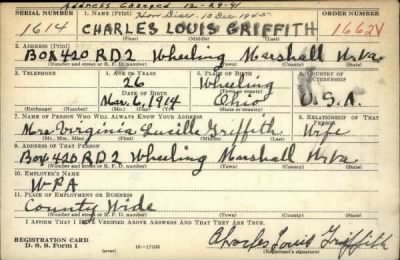 Address Changed 12-29-41
SERIAL NUMBER 1. NAME (Print) ORDER NUMBER
Hon Disc. 13 Dec 1945
1614 CHARLES LOUIS GRIFFITH 1662V
(First) (Middle) (Last)
2. ADDRESS (Print)
Box 420 RD2 Wheeling Marshall W.Va
(Number and street or R. F. D. number) (Town) (County) (State)
3. TELEPHONE 4. AGE IN YEARS 5. PLACE OF BIRTH 6. COUNTRY OF CITIZENSHIP
26 Wheeling
DATE OF BIRTH (Town or county)
Mar. 6, 1914 Ohio U.S.A.
(Exchange) (Number) (Mo.) (Day) (Yr.) (State or country)
7. NAME OF PERSON WHO WILL ALWAYS KNOW YOUR ADDRESS 8. RELATIONSHIP OF THAT PERSON
Mrs. Virginia Lucille Griffith Wife
(Mr., Mrs., Miss) (First) (Middle) (Last)
9. ADDRESS OF THAT PERSON
Box 420 RD2 Wheeling Marshall W.Va
(Number and street or R. F. D. number) (Town) (County) (State)
10. EMPLOYER'S NAME
WPA
11. PLACE OF EMPLOYMENT OR BUSINESS
County Wide
(Number and street or R. F. D. number) (Town) (County) (State)
I AFFIRM THAT I HAVE VERIFIED ABOVE ANSWERS AND THAT THEY ARE TRUE.
REGISTRATION CARD
D. S. S. Form 1 16-17105 Charles Louis Griffith
(Registrant's signature)